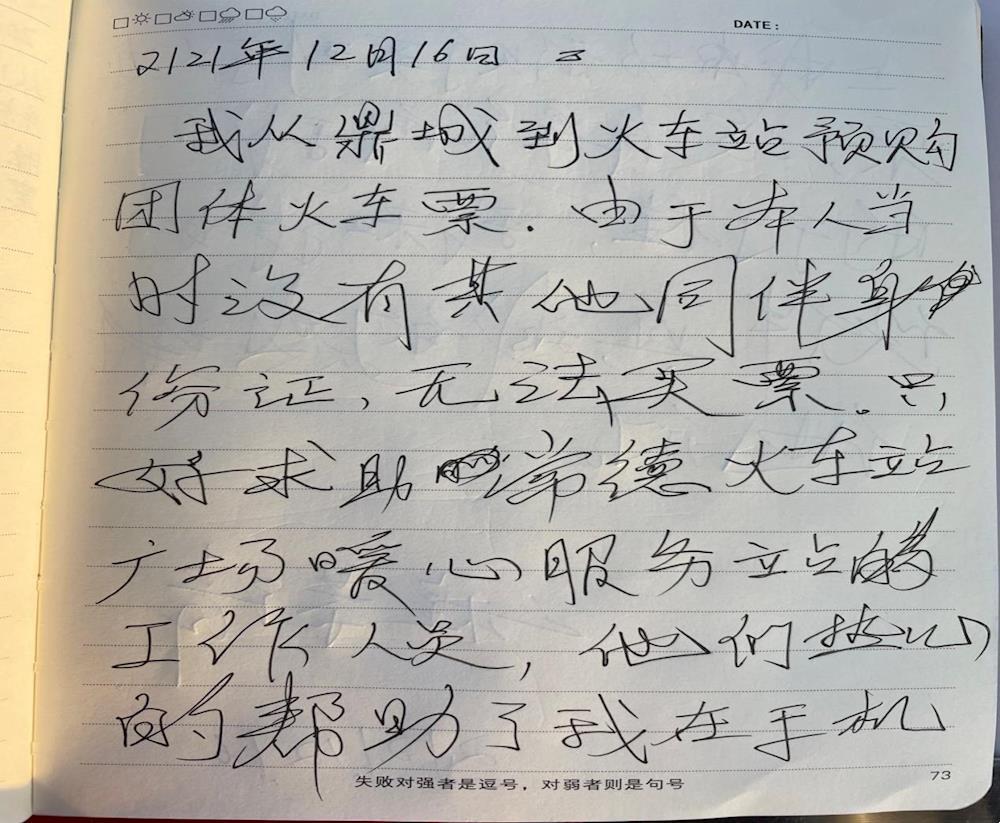 DATE:
2121年12月16日 三
我从鼎城到火车站预购
团体火车票.由于本人当
时没有其他同伴身
份证,无法买票。只
好求助常德火车站
广场暖心服务立占的
工作人员,他们热心
的帮助了我在手机
失败对强者是逗号,对弱者则是句号
73